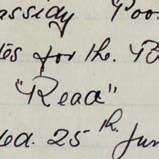 assidy Poo
tes for the. P
"Read"
ed. 25th Jun